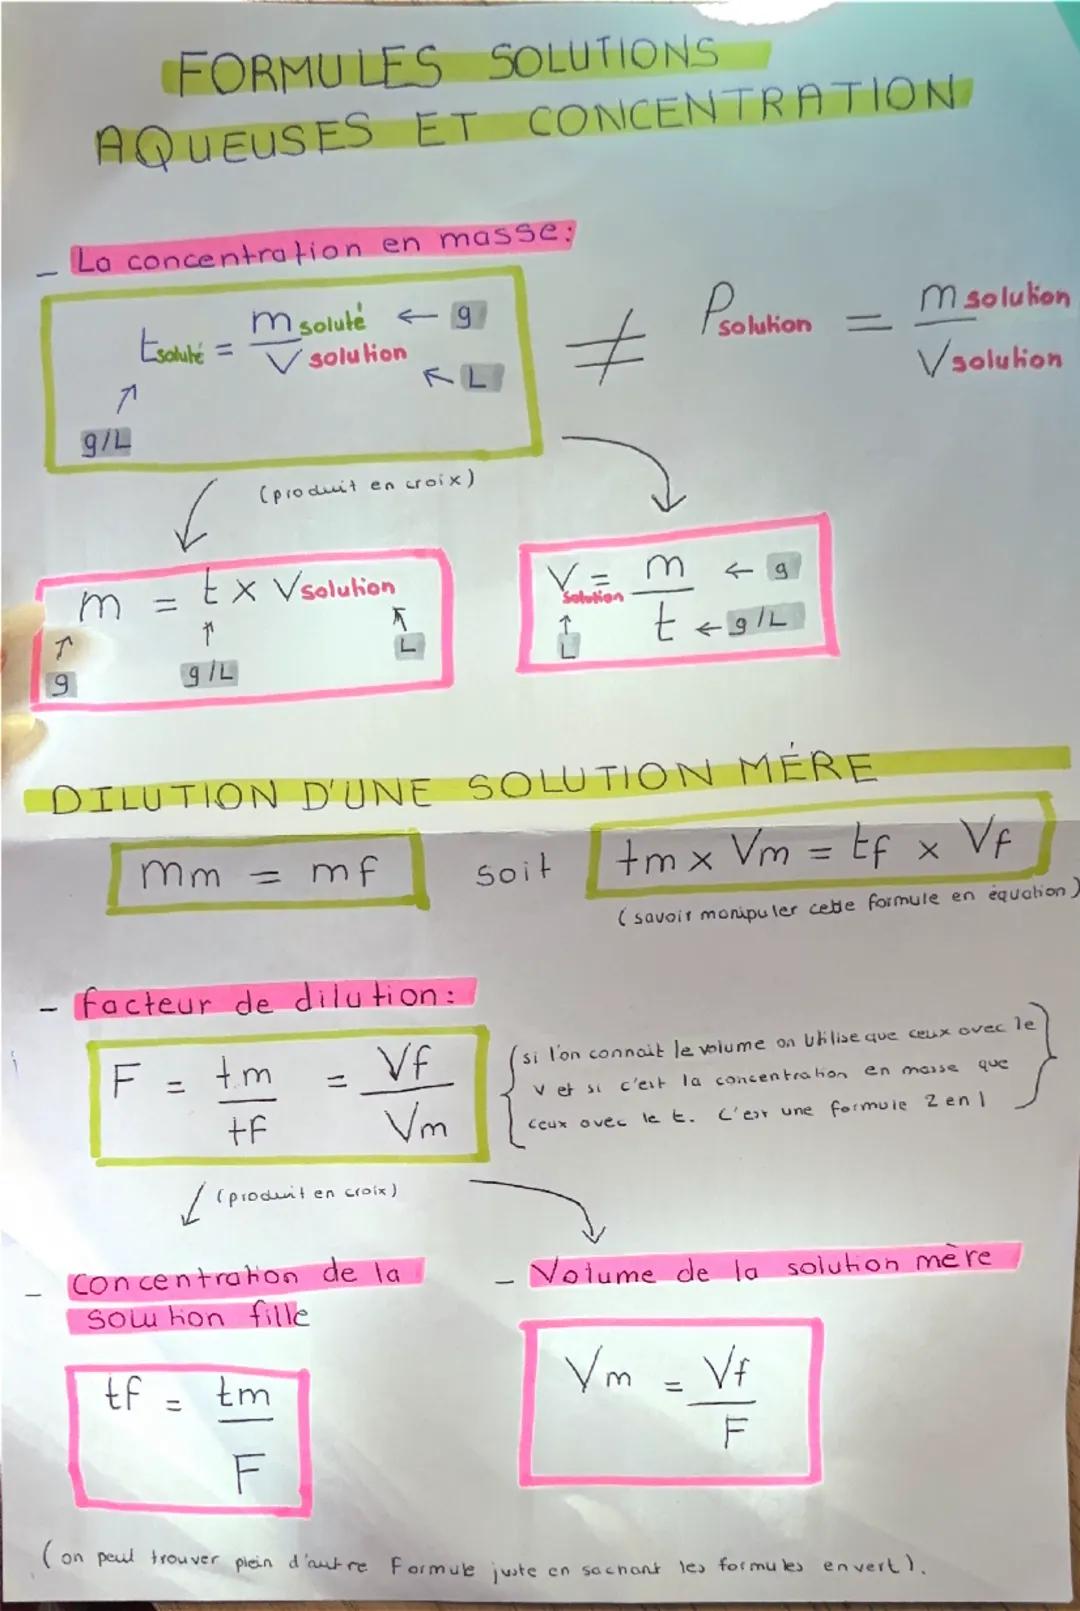 FORMULES SOLUTIONS
AQUEUSES ET CONCENTRATION
- La concentration en masse:
tsoluté = m soluté / V solution ← g
↖ L
↗
g/L
≠ Psolution = m solution / V solution
(produit en croix)
m = t x V solution
g g/L L
V solution = m / t ← g
← g/L
L
DILUTION D'UNE SOLUTION MÉRE
mm = mf soit tm x Vm = tf x Vf
(savoir manipuler cette formule en équation)
- facteur de dilution:
F = tm / tf = Vf / Vm
(si l'on connait le volume on utilise que ceux avec le
V et si c'est la concentration en masse que
ceux avec le t. C'est une formule 2 en 1
(produit en croix)
- Concentration de la
solution fille
tf = tm / F
- Volume de la solution mère
Vm = Vf / F
(on peut trouver plein d'autre Formule juste en sachant les formules en vert).